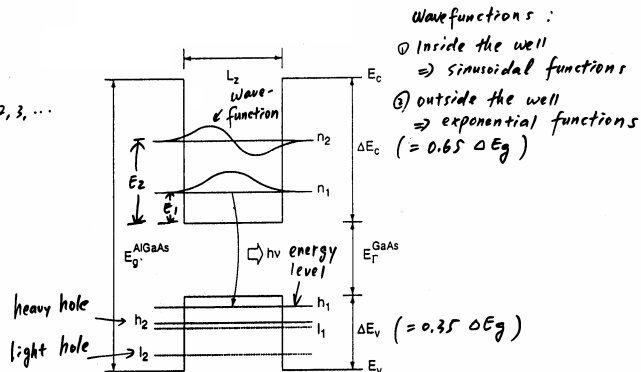 wavefunctions :
① Inside the well
⇒ sinusoidal functions
② outside the well
⇒ exponential functions
2, 3, ...
L_z
wave-
function
E_c
n_2
ΔE_c (= 0.65 ΔE_g)
E_2
n_1
E_1
E_g^AlGaAs
⇨ hν
energy
level
E_Γ^GaAs
h_1
heavy hole
h_2
l_1
ΔE_v (= 0.35 ΔE_g)
light hole
l_2
E_v